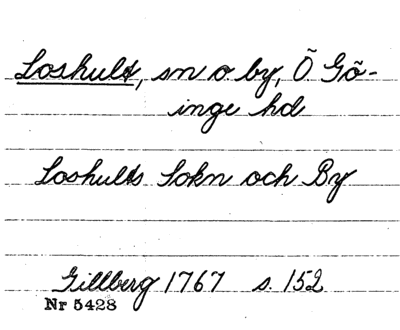 Loshult, sn o by, Ö Gö-
inge hd
Loshults Sokn och By
Gillberg 1767 s. 152
Nr 5428